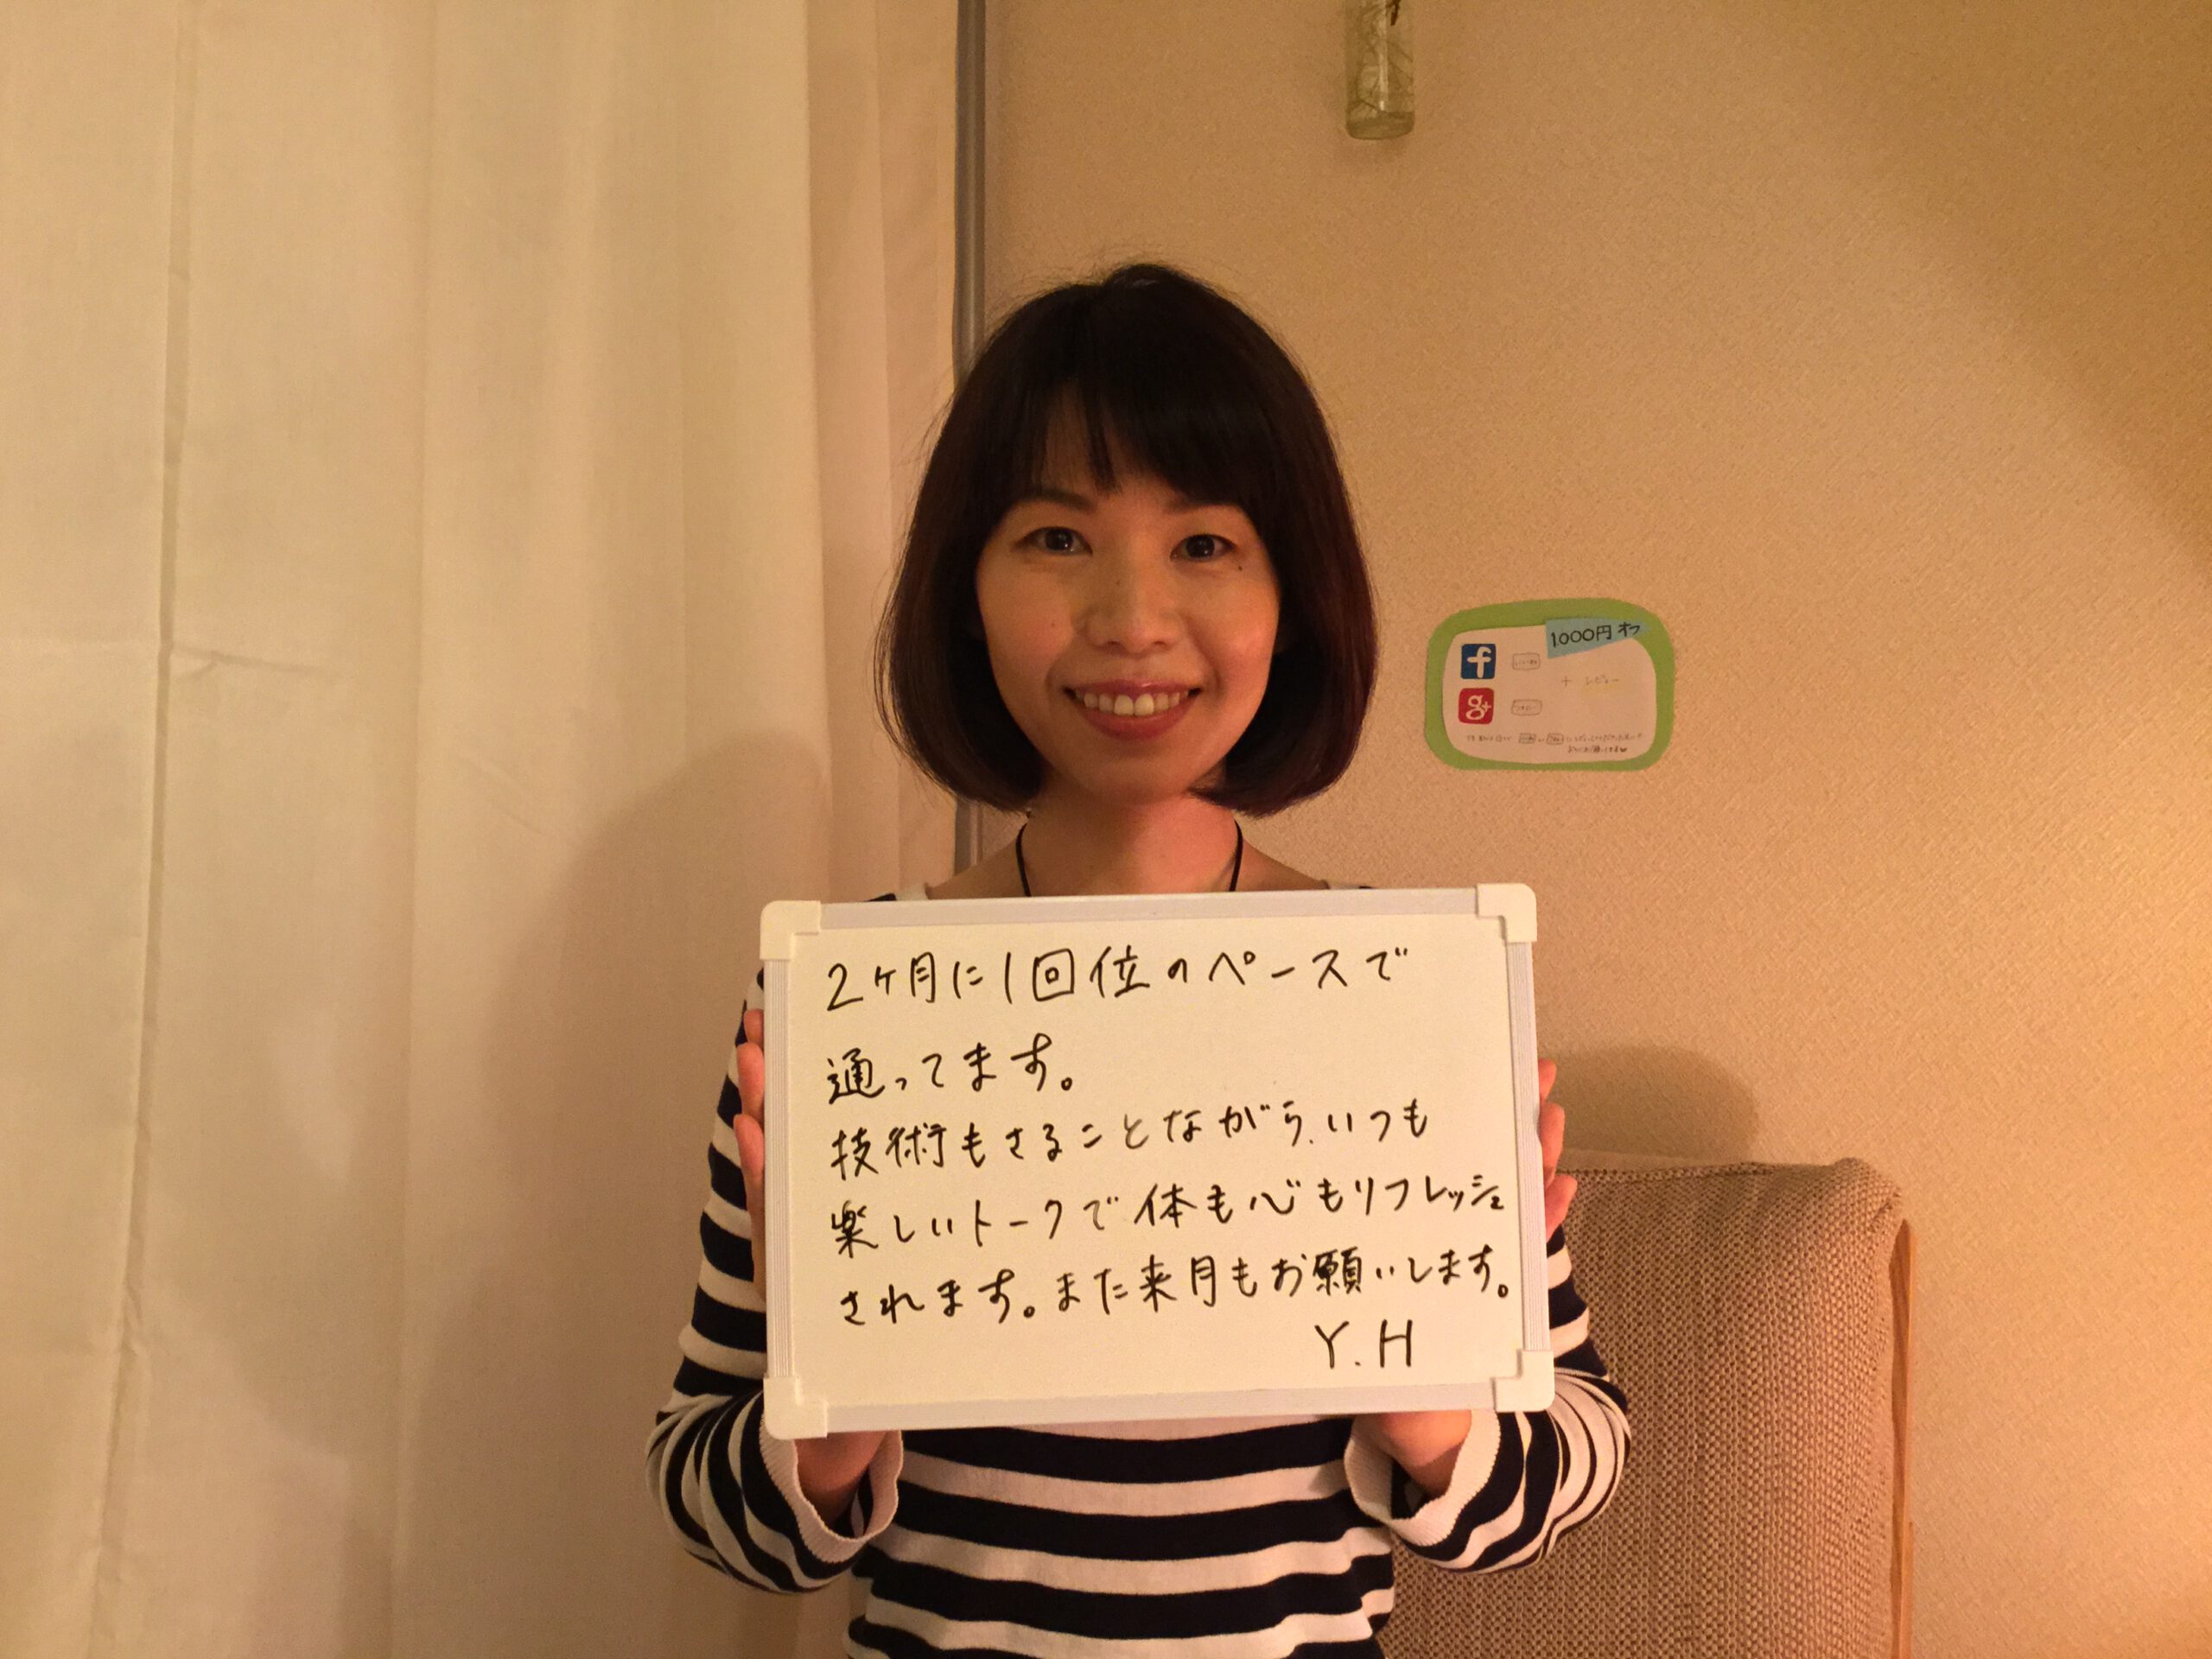 2ヶ月に1回位のペースで
通ってます。
技術もさることながら、いつも
楽しいトークで体も心もリフレッシュ
されます。また来月もお願いします。
Y.H
1000円オフ
f
g+
+ レビュー